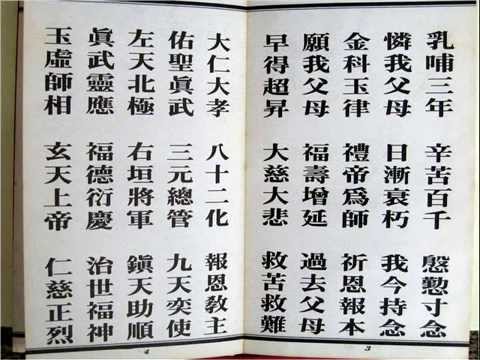 乳哺三年 辛苦百千 慇懃寸念
憐我父母 日漸衰朽 我今持念
金科玉律 禮帝爲師 祈恩報本
願我父母 福壽增延 過去父母
早得超昇 大慈大悲 救苦救難
3
大仁大孝 八十二化 報恩教主
佑聖眞武 三元總管 九天奕使
左天北極 右垣將軍 鎭天助順
眞武靈應 福德衍慶 治世福神
玉虛師相 玄天上帝 仁慈正烈
4